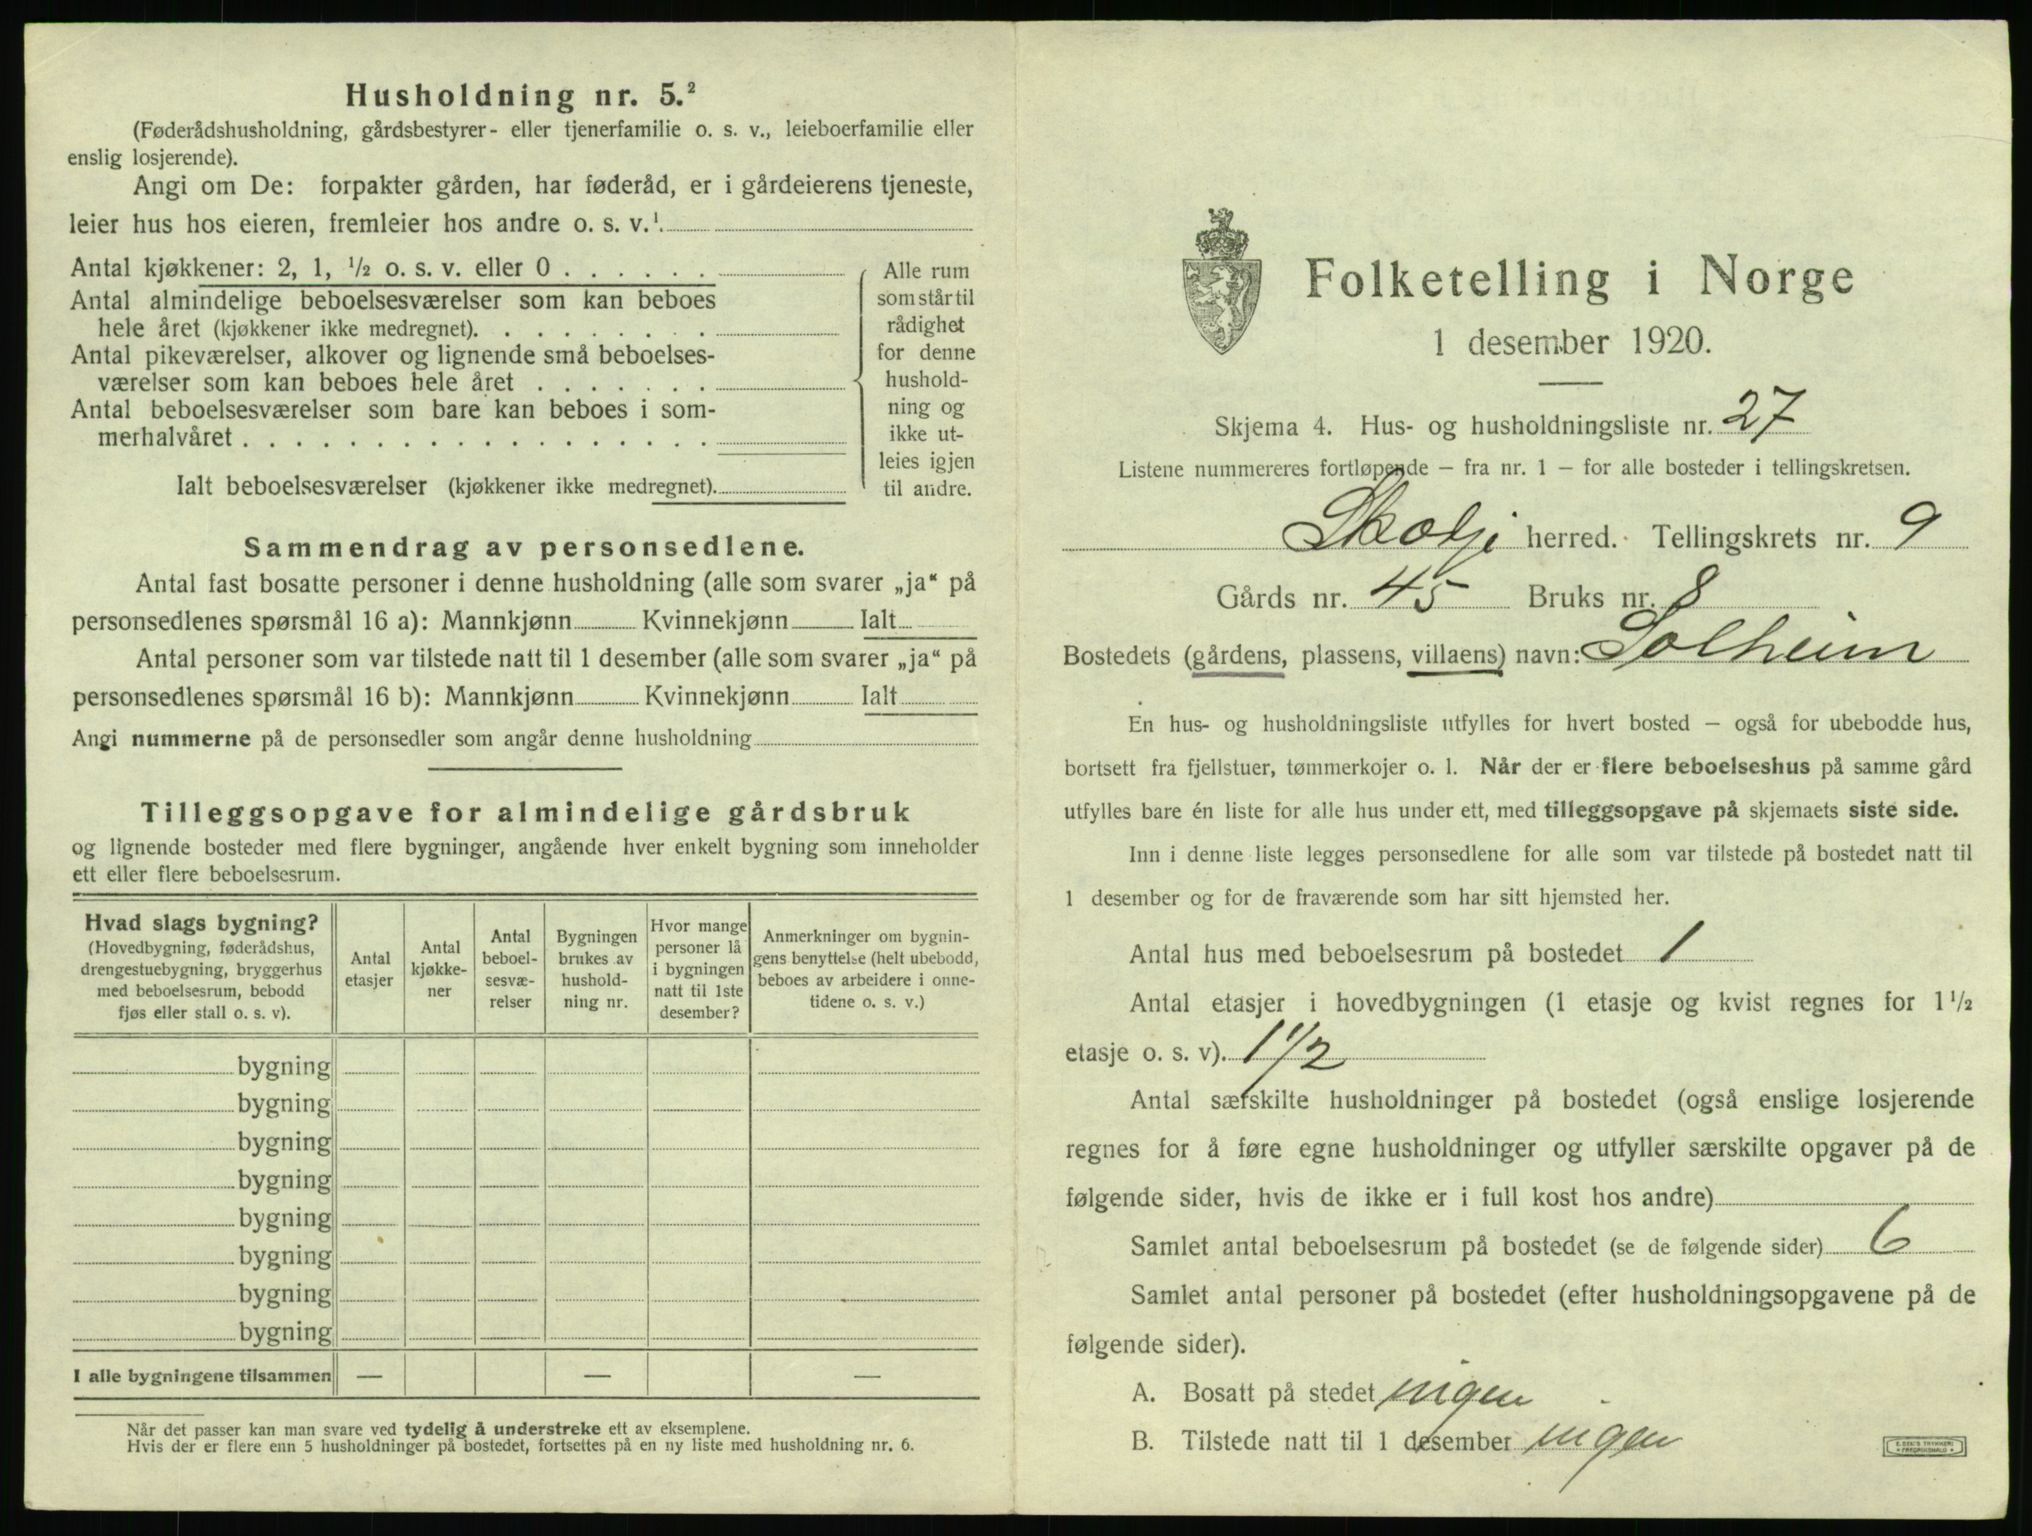 Husholdning nr. 5.²
(Føderådshusholdning, gårdsbestyrer- eller tjenerfamilie o. s. v., leieboerfamilie eller
enslig losjerende).
Angi om De: forpakter gården, har føderåd, er i gårdeierens tjeneste,
leier hus hos eieren, fremleier hos andre o. s. v.¹
Antal kjøkkener: 2, 1, ½ o. s. v. eller 0 . . . . . .
Antal almindelige beboelsesværelser som kan beboes
hele året (kjøkkener ikke medregnet). . . . . . . . .
Antal pikeværelser, alkover og lignende små beboelses-
værelser som kan beboes hele året . . . . . . .
Antal beboelsesværelser som bare kan beboes i som-
merhalvåret . . . . . . . . . . . . . . . . . .
Ialt beboelsesværelser (kjøkkener ikke medregnet).
Alle rum
som står til
rådighet
for denne
hushold-
ning og
ikke ut-
leies igjen
til andre.
Sammendrag av personsedlene.
Antal fast bosatte personer i denne husholdning (alle som svarer „ja“ på
personsedlenes spørsmål 16 a): Mannkjønn Kvinnekjønn Ialt
Antal personer som var tilstede natt til 1 desember (alle som svarer „ja“ på
personsedlenes spørsmål 16 b): Mannkjønn Kvinnekjønn Ialt
Angi nummerne på de personsedler som angår denne husholdning
Tilleggsopgave for almindelige gårdsbruk
og lignende bosteder med flere bygninger, angående hver enkelt bygning som inneholder
ett eller flere beboelsesrum.
Hvad slags bygning?
(Hovedbygning, føderådshus,
drengestuebygning, bryggerhus
med beboelsesrum, bebodd
fjøs eller stall o. s. v).
Antal
etasjer
Antal
kjøkke-
ner
Antal
beboel-
sesvæ-
relser
Bygningen
brukes av
hushold-
ning nr.
Hvor mange
personer lå
i bygningen
natt til 1ste
desember?
Anmerkninger om bygnin-
gens benyttelse (helt ubebodd,
beboes av arbeidere i onne-
tidene o. s. v.)
bygning
bygning
bygning
bygning
bygning
bygning
bygning
bygning
I alle bygningene tilsammen — — —
Når det passer kan man svare ved tydelig å understreke ett av eksemplene.
Hvis der er flere enn 5 husholdninger på bostedet, fortsettes på en ny liste med husholdning nr. 6.
Folketelling i Norge
1 desember 1920.
Skjema 4. Hus- og husholdningsliste nr. 27
Listene nummereres fortløpende – fra nr. 1 – for alle bosteder i tellingskretsen.
Skodje herred. Tellingskrets nr. 9
Gårds nr. 45 Bruks nr. 8
Bostedets (gårdens, plassens, villaens) navn: Solheim
En hus- og husholdningsliste utfylles for hvert bosted – også for ubebodde hus,
bortsett fra fjellstuer, tømmerkojer o. l. Når der er flere beboelseshus på samme gård
utfylles bare én liste for alle hus under ett, med tilleggsopgave på skjemaets siste side.
Inn i denne liste legges personsedlene for alle som var tilstede på bostedet natt til
1 desember og for de fraværende som har sitt hjemsted her.
Antal hus med beboelsesrum på bostedet 1
Antal etasjer i hovedbygningen (1 etasje og kvist regnes for 1½
etasje o. s. v). 1½
Antal særskilte husholdninger på bostedet (også enslige losjerende
regnes for å føre egne husholdninger og utfyller særskilte opgaver på de
følgende sider, hvis de ikke er i full kost hos andre)
Samlet antal beboelsesrum på bostedet (se de følgende sider) 6
Samlet antal personer på bostedet (efter husholdningsopgavene på de
følgende sider).
A. Bosatt på stedet ingen
B. Tilstede natt til 1 desember ingen